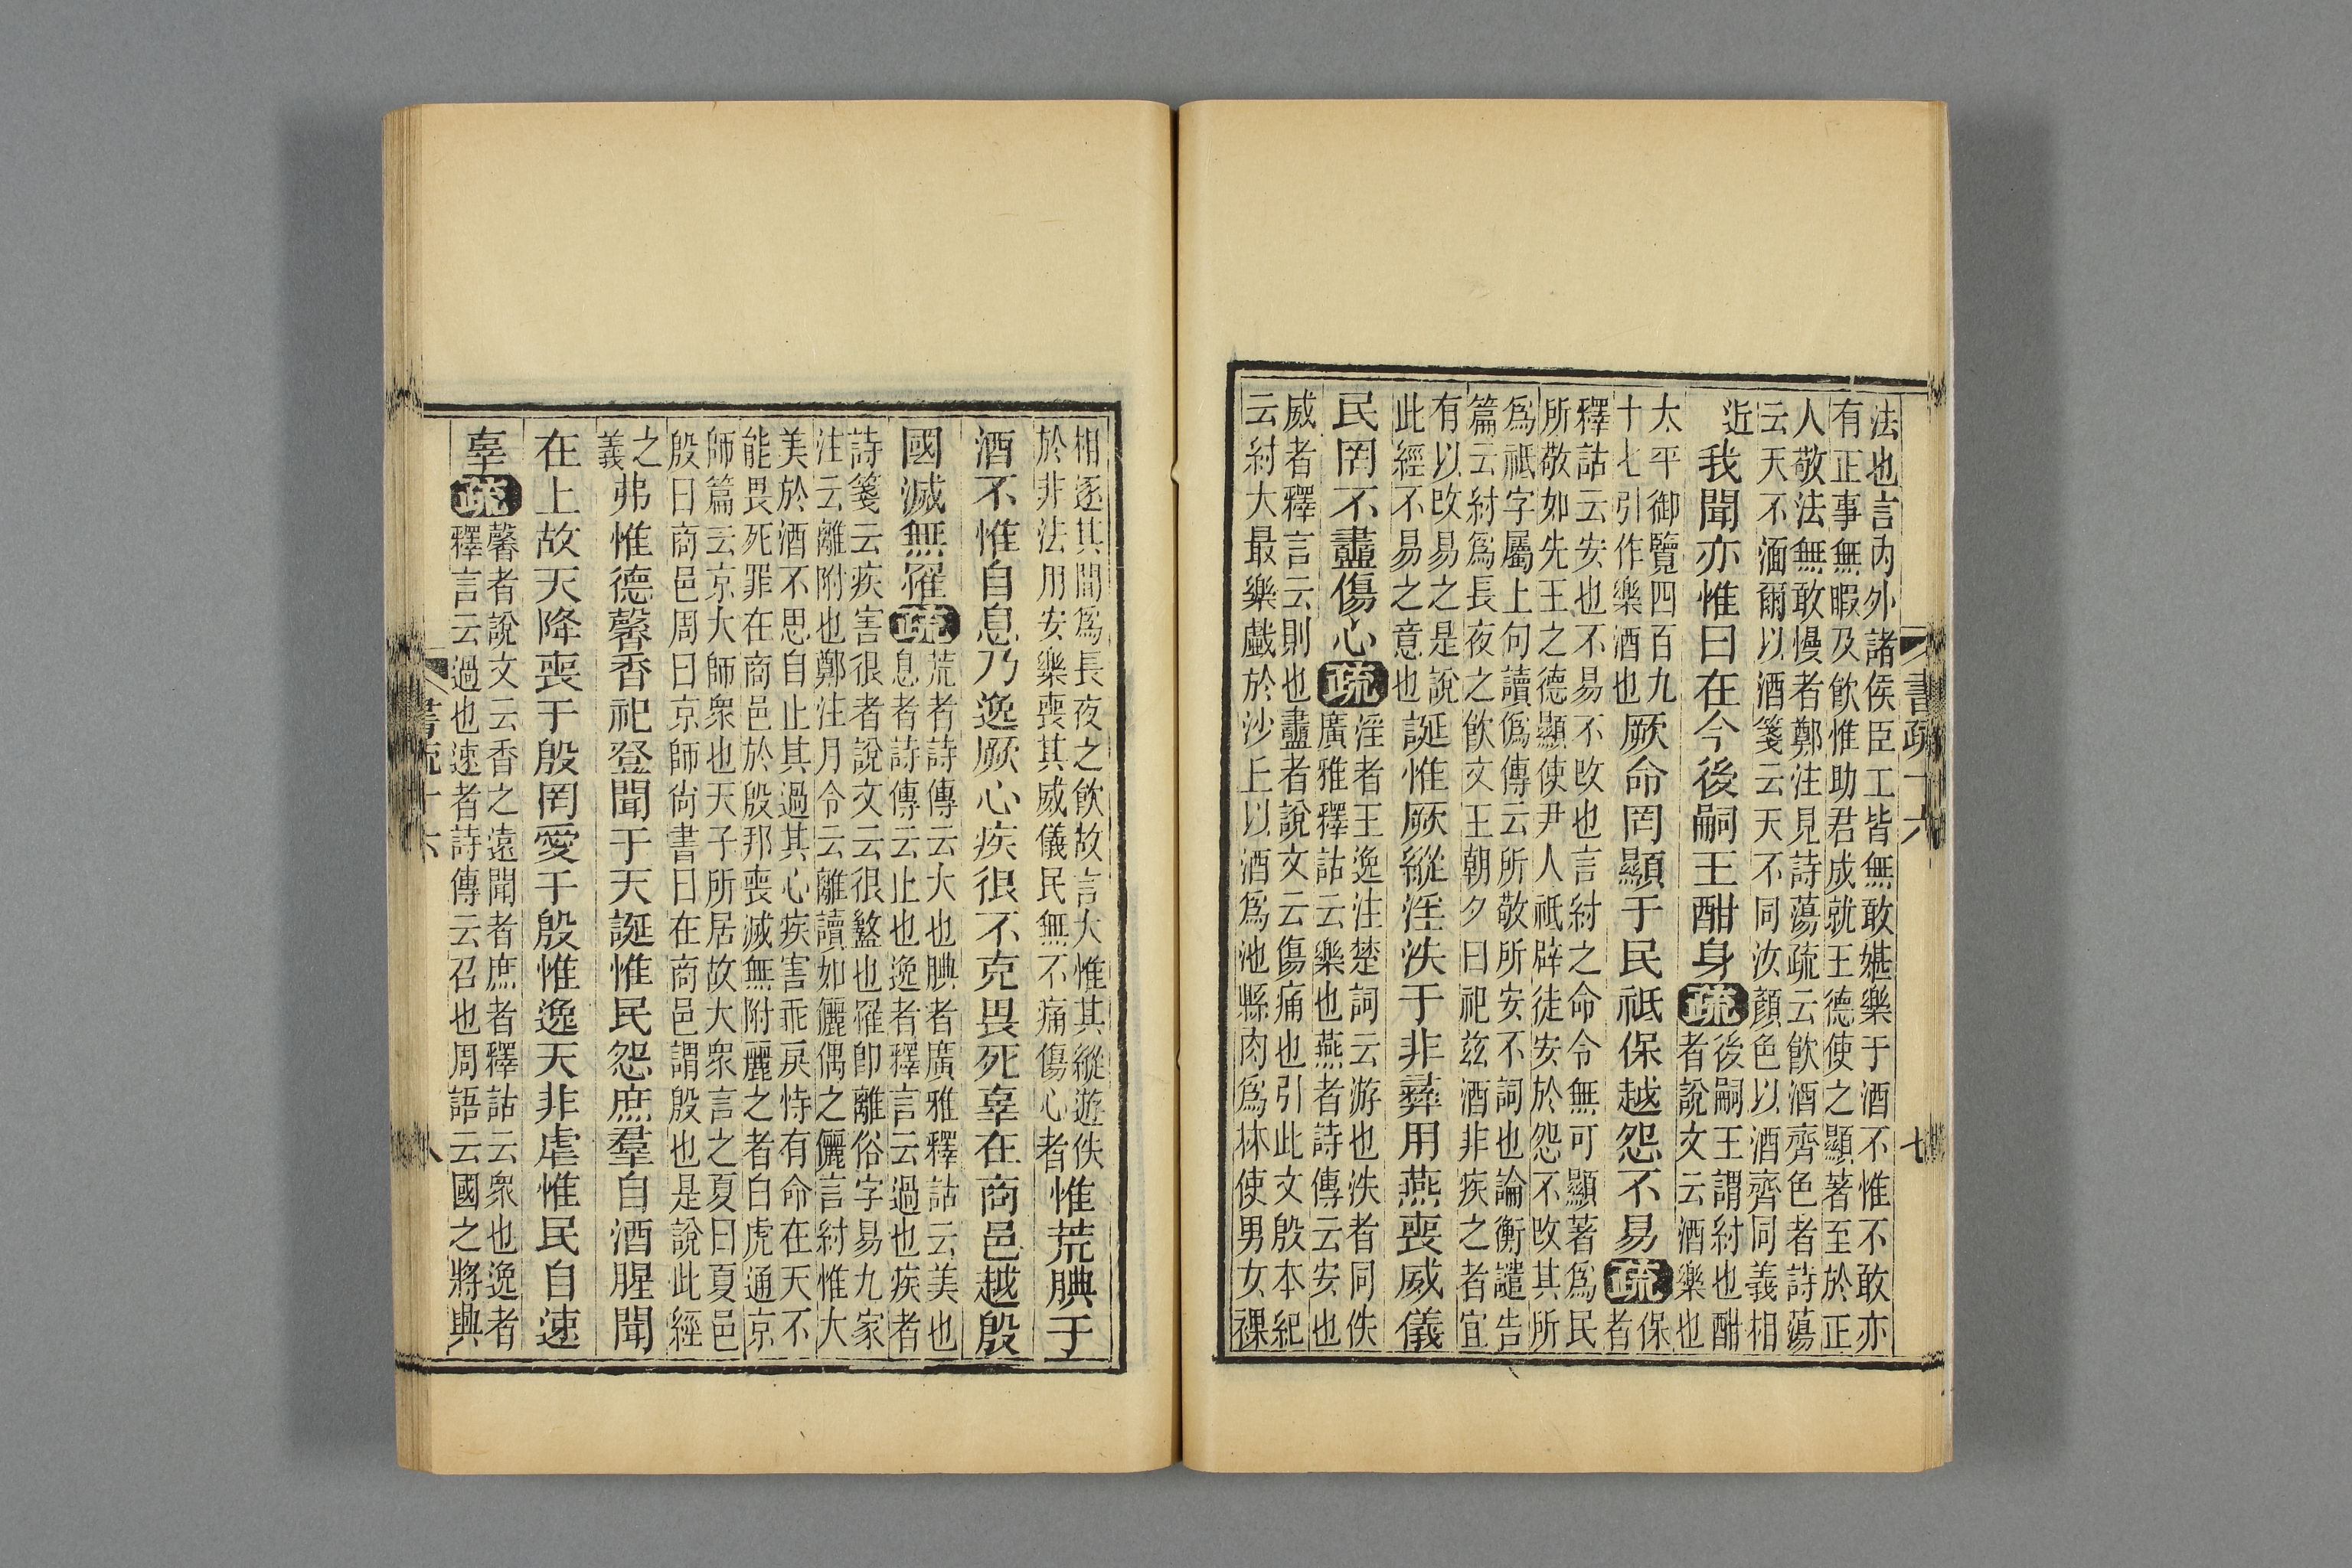 法也言內外諸侯臣工皆無敢媅樂于酒不惟不敢亦
有正事無暇及飲惟助君成就王德使之顯著至於正
人敬法無敢慢者鄭注見詩蕩疏云飲酒齊色者詩蕩
云天不湎爾以酒箋云天不同汝顏色以酒齊同義相
近
我聞亦惟曰在今後嗣王酣身疏
後嗣王謂紂也酣
者說文云酒樂也
太平御覽四百九
十七引作樂酒也
厥命罔顯于民祇保越怨不易疏
保
者
釋詁云安也不易不攺也言紂之命令無可顯著爲民
所敬如先王之德顯使尹人祇辟徒安於怨不攺其所
爲祇字屬上句讀僞傳云所敬所安不詞也論衡譴告
篇云紂爲長夜之飲文王朝夕曰祀茲酒非疾之者宜
有以攺易之是說
此經不易之意也
誕惟厥縱淫泆于非彝用燕喪威儀
民罔不衋傷心疏
淫者王逸注楚詞云游也泆者同佚
廣雅釋詁云樂也燕者詩傳云安也
威者釋言云則也衋者說文云傷痛也引此文殷本紀
云紂大最樂戲於沙丘以酒爲池縣肉爲林使男女裸
書疏十六
七
相逐其閒爲長夜之飲故言大惟其縱遊佚
於非法用安樂喪其威儀民無不痛傷心者
惟荒腆于
酒不惟自息乃逸厥心疾很不克畏死辜在商邑越殷
國滅無罹疏
荒者詩傳云大也腆者廣雅釋詁云美也
息者詩傳云止也逸者釋言云過也疾者
詩箋云疾害很者說文云很盭也罹卽離俗字易九家
注云離附也鄭注月令云離讀如儷偶之儷言紂惟大
美於酒不思自止其過其心疾害乖戾恃有命在天不
能畏死罪在商邑於殷邦喪滅無附麗之者白虎通京
師篇云京大師眾也天子所居故大眾言之夏曰夏邑
殷曰商邑周曰京師尙書曰在商邑謂殷也是說此經
之
義
弗惟德馨香祀登聞于天誕惟民怨庶羣自酒腥聞
在上故天降喪于殷罔愛于殷惟逸天非虐惟民自速
辜疏
馨者說文云香之遠聞者庶者釋詁云眾也逸者
釋言云過也速者詩傳云召也周語云國之將興
書疏十六
八